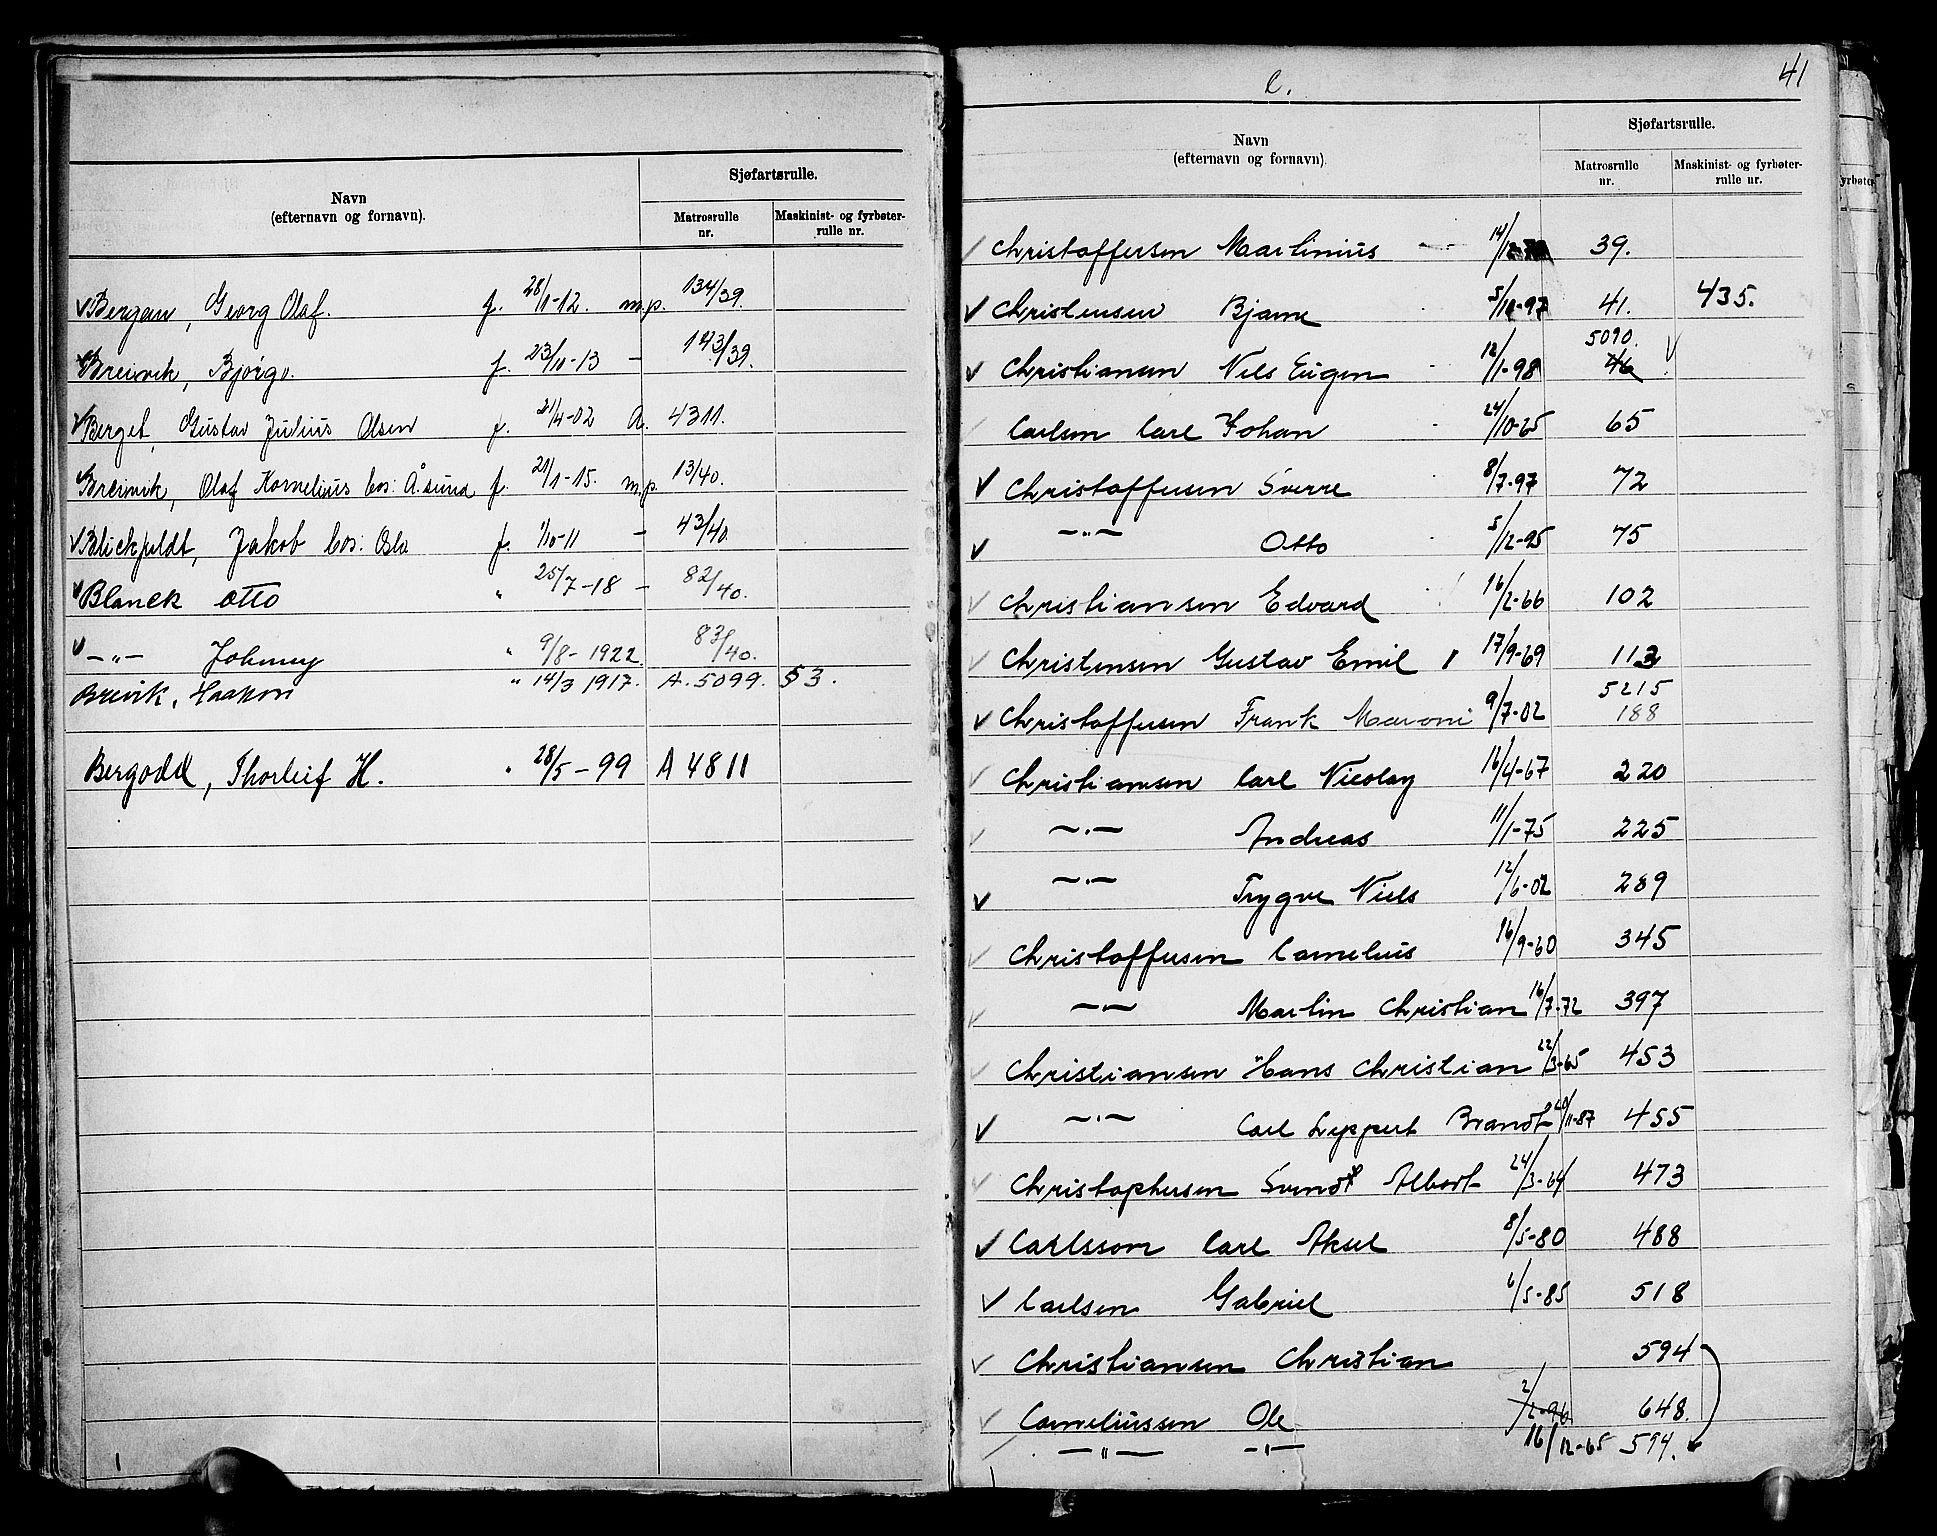 Navn
(efternavn og fornavn).
Sjøfartsrulle.
Matrosrulle nr.
Maskinist- og fyrbøter-rulle nr.
Bergan, Georg Olaf. f. 28/1-12. m.p. 134/39.
Breivik, Bjørgv. f. 23/11-13 — 143/39.
Berget, Gustav Julius Olsen f. 21/4-02 A. 4311.
Breivik, Olaf Kornelius bos: Å.sund f. 21/1-15. m.p. 13/40.
Blickfeldt, Jakob bos: Oslo f. 1/10-11 — 43/40.
Blanck Otto " 25/7-18 — 82/40.
—„— Johnny " 9/8-1922. 83/40.
Breivik, Haakon " 14/3 1917. A. 5099. 53.
Bergodd, Thorleif H. " 28/5-99 A 4811
C.
41
Navn
(efternavn og fornavn).
Sjøfartsrulle.
Matrosrulle nr.
Maskinist- og fyrbøter-rulle nr.
Christoffersen Martinius 39.
Christensen Bjarne 5/10-97 41. 435.
5090.
Christiansen Nils Eugen 12/1-98 46
Carlsen Carl Johan 24/10-65 65
Christoffersen Sverre 8/7-97 72
—„— Otto 5/12-95 75
Christiansen Edvard 16/2-66 102
Christensen Gustav Emil 17/9-69 113
5215
Christoffersen Frank Maroni 9/7-02 188
Christiansen Carl Nicolay 16/4-67 220
—„— Andreas 11/1-75 225
—„— Trygve Niels 12/6-02 289
Christoffersen Cornelius 16/9-60 345
—„— Martin Christian 16/7-72 397
Christiansen Hans Christian 22/3-65 453
—„— Carl Lippert Brandt 20/11-87 455
Christophersen Svend Albert 24/3-64 473
Carlsson Carl Aksel 8/5-80 488
Carlsen Gabriel 6/5-85 518
Christiansen Christian 594
Corneliussen Ole 2/2-96 648.
—„— —„— 16/12-65 594.